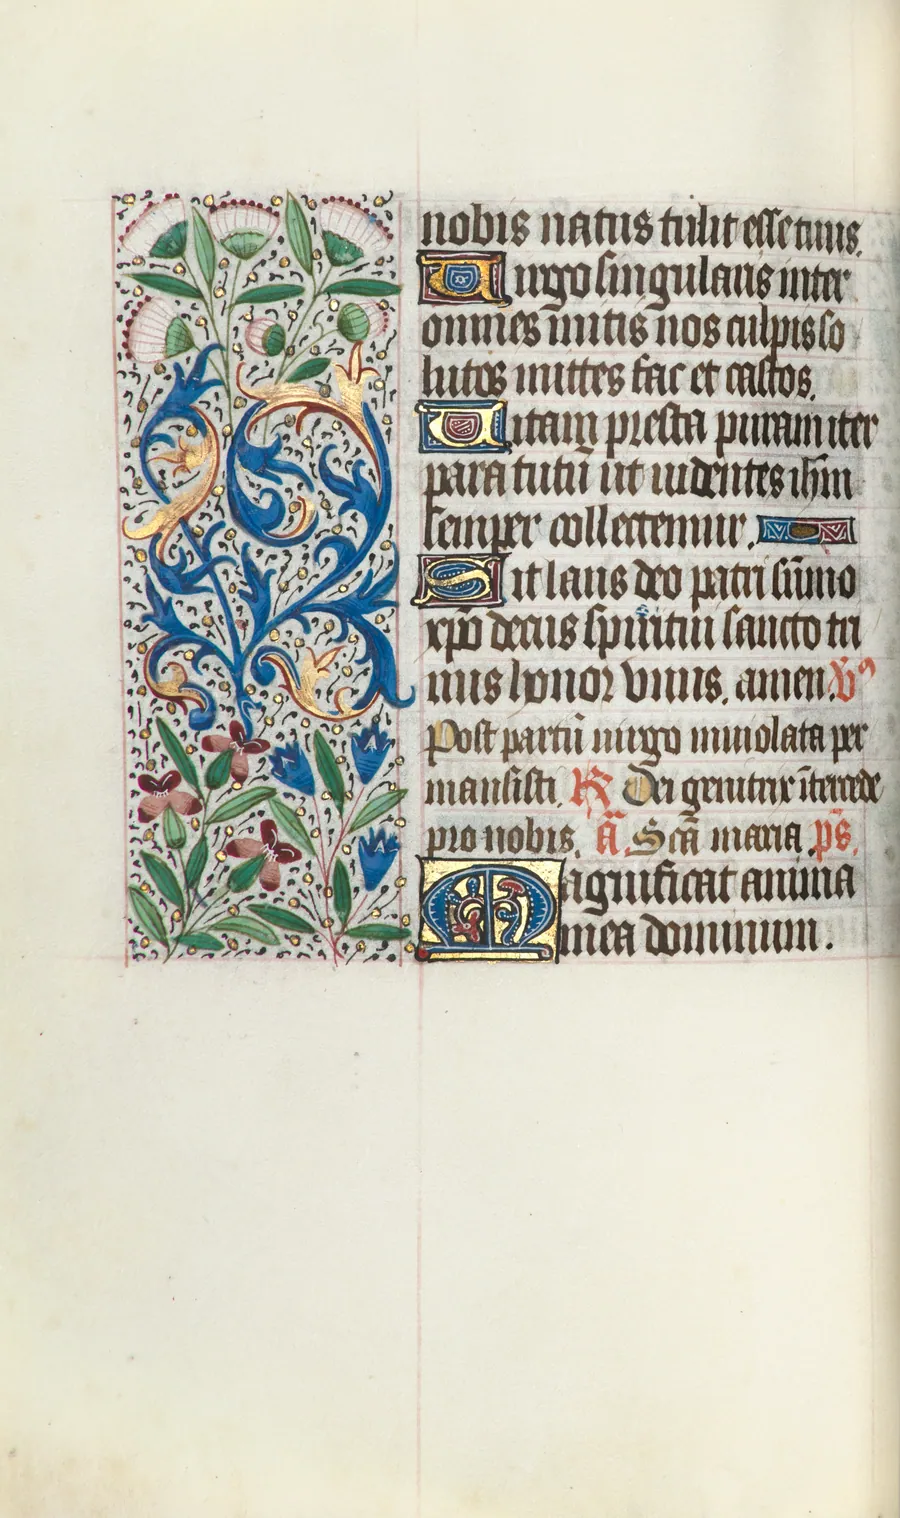 nobis natus tulit esse tuus.
Uirgo singularis inter
omnes mitis nos culpis so
lutos mittes fac et castos.
Uitam presta puram iter
para tutū ut uidentes ihm̄
semper collectemur.
Sit laus deo patri sūmo
xp̄o decus spiritui sancto tri
nus honor vnus. amen. V᷒
Post partū uirgo inuiolata per
mansisti. R Dei genitrix ītercede
pro nobis. ā. Scā maria. p̄s.
Magnificat anima
mea dominum.